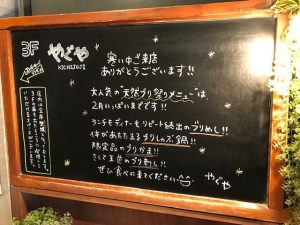 3F
やぐや
KICHIJOJI
寒い中ご来店
ありがとうございます!!
大人気の"天然ブリ祭りメニュー"は、
2月いっぱいまでです!!
ランチもディナーもリピート続出のブリめし!!
体があたたまるブリしゃぶ鍋!!
限定品のブリかま!!
そして王道のブリ刺し!!
ぜひ食べに来てください。
やぐや